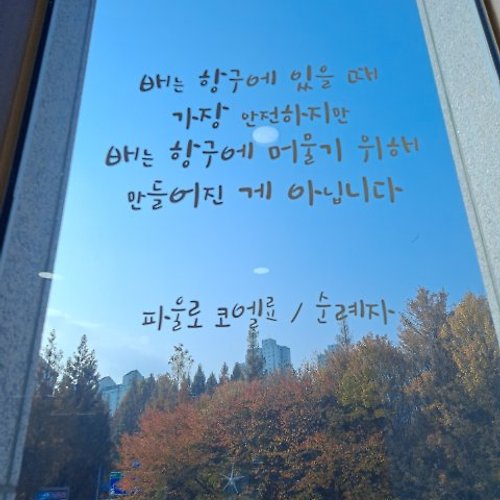 배는 항구에 있을 때
가장 안전하지만
배는 항구에 머물기 위해
만들어진 게 아닙니다
파울로 코엘료 / 순례자